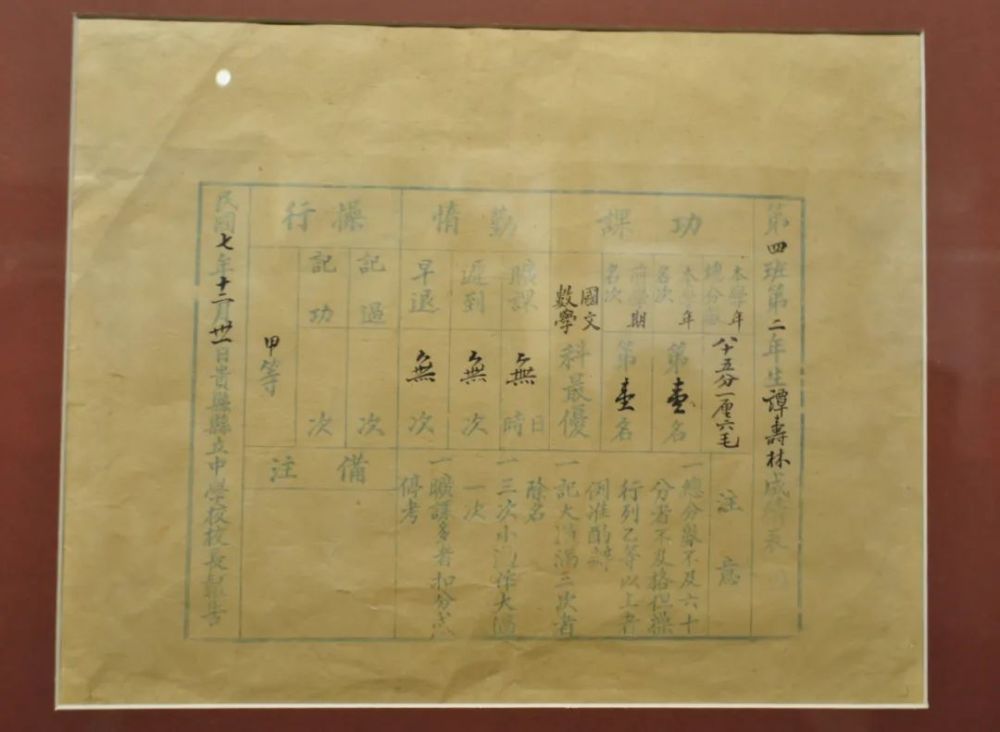 第四班第二年生譚壽林成績表
功課
本學年
總分數
八十五分一厘六毛
本學年
名次
第壹名
前學期
名次
第壹名
國文
數學
科最優
勤惰
曠課
無
日
時
遲到
無
次
早退
無
次
操行
記過
次
記功
次
甲等
注意
一總分數不及六十
分者不及格但操
行列乙等以上者
例准酌辦
一記大過滿三次者
除名
一三次小過作大過
一次
一曠課多者扣分或
停考
備注
民國七年十二月卅一日貴縣縣立中學校校長報告